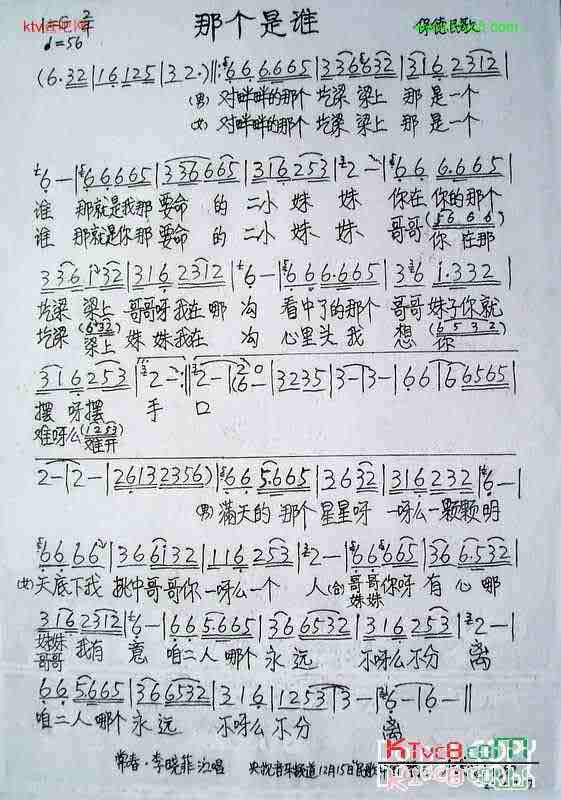 ktv
1=G 2/4
那个是谁
保德民歌
♩=56
(6·32|16125|32·)‖:66 6.6665|336632|3162312|
(男) 对畔畔的那个 圪梁 梁上 那是一个
(女) 对畔畔的那个 圪梁 梁上 那是一个
6—|666665|336665|316253|2—|66 6.665|
谁 那就是我那 要命 的 二小 妹 妹 你在 你的那个
谁 那就是你那 要命 的 二小 妹 妹 哥哥 (5666) 你 在那
336132|3162312|6—|666.665|336 1.332|
圪梁 梁上 哥哥呀 我在 哪 沟 看中了的那个 哥哥 妹子你就
圪梁 (632) 梁上 妹妹我在 沟 心里头 我 想 (6532) 你
316253|2—:‖2—|2 0 (6|3235|3—|3—|66|66565|
摆 呀摆 手 口
难呀么 (1253) 难开
2—|2—|26132356)|665.665|36632|316232|6—|
(男) 满天的 那个 星星呀 一呀么一颗颗明
6666|366132|116253|2—|666665|366.532|
(女) 天底下我 挑中哥哥你 一呀么一个 人 (合) 哥哥你呀 有 心 哪
妹妹
3162312|6—|665.665|366532|316253|2—|
妹妹 我有 意 咱二人 哪个 永 远 不呀么不分 离
哥哥
665.665|366532|316|12533—|6—|6—‖
咱二人 哪个 永 远 不呀么 不分 离
常春·李晓菲 演唱 央视音乐频道12月15日
KTvc8.com
COPY